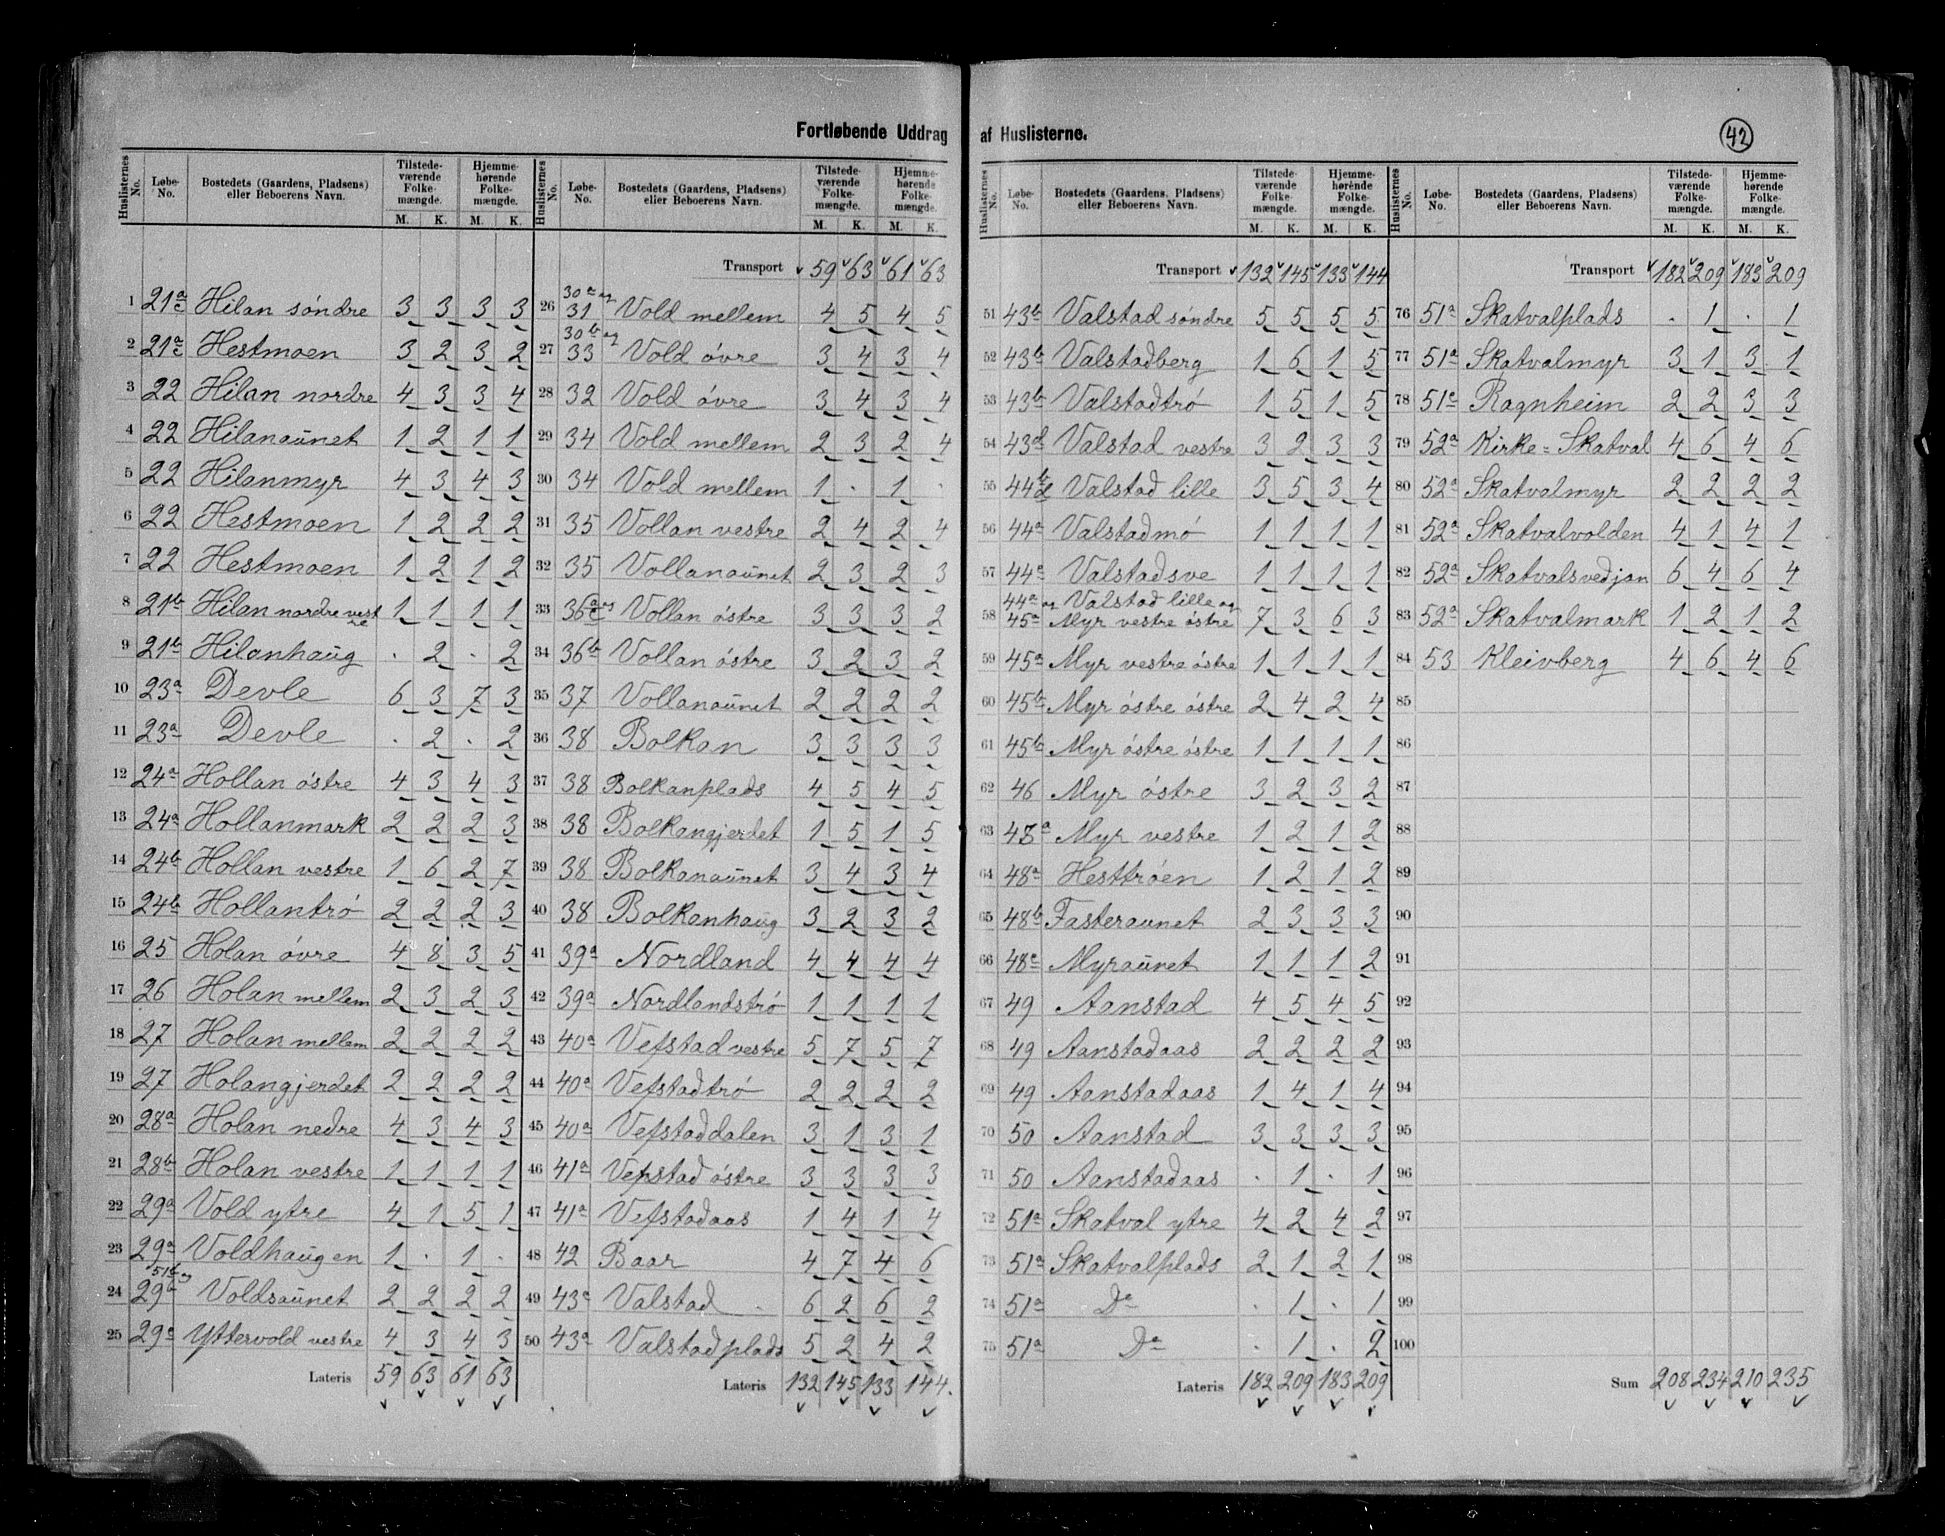 Fortløbende Uddrag af Huslisterne.
42
Huslisternes No. | Løbe-No. | Bostedets (Gaardens, Pladsens) eller Beboerens Navn. | Tilstedeværende Folkemængde. M. K. | Hjemmehørende Folkemængde. M. K.
1 21a c Hilan söndre 3 3 3 3
2 21a c Hestmoen 3 2 3 2
3 22 Hilan nordre 4 3 3 4
4 22 Hilanaunet 1 2 1 1
5 22 Hilanmyr 4 3 4 3
6 22 Hestmoen 1 2 2 2
7 22 Hestmoen 1 2 1 2
8 21b Hilan nordre vestre 1 1 1 1
9 21b Hilanhaug . 2 . 2
10 23a Devle 6 3 7 3
11 23a Devle . 2 . 2
12 24a Hollan östre 4 3 4 3
13 24a Hollanmark 2 2 2 3
14 24b Hollan vestre 1 6 2 7
15 24b Hollantrö 2 2 2 3
16 25 Holan övre 4 8 3 5
17 26 Holan mellem 2 3 2 3
18 27 Holan mellem 2 2 2 2
19 27 Holangjerdet 2 2 2 2
20 28a Holan nedre 4 3 4 3
21 28b Holan vestre 1 1 1 1
22 29a Vold ytre 4 1 5 1
23 29a Voldhaugen 1 . 1 .
24 51b og 29b Voldsaunet 2 2 2 2
25 29a Yttervold vestre 4 3 4 3
Lateris 59 63 61 63
Huslisternes No. | Løbe-No. | Bostedets (Gaardens, Pladsens) eller Beboerens Navn. | Tilstedeværende Folkemængde. M. K. | Hjemmehørende Folkemængde. M. K.
Transport 59 63 61 63
26 30a og 31 Vold mellem 4 5 4 5
27 30b og 33 Vold övre 3 4 3 4
28 32 Vold övre 3 4 3 4
29 34 Vold mellem 2 3 2 4
30 34 Vold mellem 1 . 1 .
31 35 Vollan vestre 2 4 2 4
32 35 Vollanaunet 2 3 2 3
33 36a og c Vollan östre 3 3 3 2
34 36b Vollan östre 3 2 3 2
35 37 Vollanaunet 2 2 2 2
36 38 Bolkan 3 3 3 3
37 38 Bolkanplads 4 5 4 5
38 38 Bolkangjerdet 1 5 1 5
39 38 Bolkanaunet 3 4 3 4
40 38 Bolkanhaug 3 2 3 2
41 39a Nordland 4 4 4 4
42 39a Nordlandströ 1 1 1 1
43 40a Vefstad vestre 5 7 5 7
44 40a Vefstadtrö 2 2 2 2
45 40a Vefstaddalen 3 1 3 1
46 41a Vefstad östre 3 3 3 3
47 41a Vefstadaas 1 4 1 4
48 42 Baar 4 7 4 6
49 43a Valstad 6 2 6 2
50 43a Valstadplads 5 2 4 2
Lateris 132 145 133 144.
Huslisternes No. | Løbe-No. | Bostedets (Gaardens, Pladsens) eller Beboerens Navn. | Tilstedeværende Folkemængde. M. K. | Hjemmehørende Folkemængde. M. K.
Transport 132 145 133 144
51 43b Valstad söndre 5 5 5 5
52 43b Valstadberg 1 6 1 5
53 43b Valstadtrö 1 5 1 5
54 43d Valstad vestre 3 2 3 3
55 44b d Valstad lille 3 5 3 4
56 44a Valstadmö 1 1 1 1
57 44a Valstadsve 1 1 1 1
58 44a og 45a Valstad lille og Myr vestre östre 7 3 6 3
59 45a Myr vestre östre 1 1 1 1
60 45b Myr östre östre 2 4 2 4
61 45b Myr östre östre 1 1 1 1
62 46 Myr östre 3 2 3 2
63 48a Myr vestre 1 2 1 2
64 48a Hesttröen 1 2 1 2
65 48b Fasteraunet 2 3 3 3
66 48a Myraunet 1 1 1 2
67 49 Aanstad 4 5 4 5
68 49 Aanstadaas 2 2 2 2
69 49 Aanstadaas 1 4 1 4
70 50 Aanstad 3 3 3 3
71 50 Aanstadaas . 1 . 1
72 51a Skatval ytre 4 2 4 2
73 51a Skatvalplads 2 1 2 1
74 51a Do . 1 . 1
75 51a Do . 1 . 2
Lateris 182 209 183 209
Huslisternes No. | Løbe-No. | Bostedets (Gaardens, Pladsens) eller Beboerens Navn. | Tilstedeværende Folkemængde. M. K. | Hjemmehørende Folkemængde. M. K.
Transport 182 209 183 209
76 51a Skatvalplads . 1 . 1
77 51a Skatvalmyr 3 1 3 1
78 51c Ragnheim 2 2 3 3
79 52a Kirke=Skatval 4 6 4 6
80 52a Skatvalmyr 2 2 2 2
81 52a Skatvalvolden 4 1 4 1
82 52a Skatvalsvedjan 6 4 6 4
83 52a Skatvalmark 1 2 1 2
84 53 Kleivberg 4 6 4 6
85
86
87
88
89
90
91
92
93
94
95
96
97
98
99
100
Sum 208 234 210 235